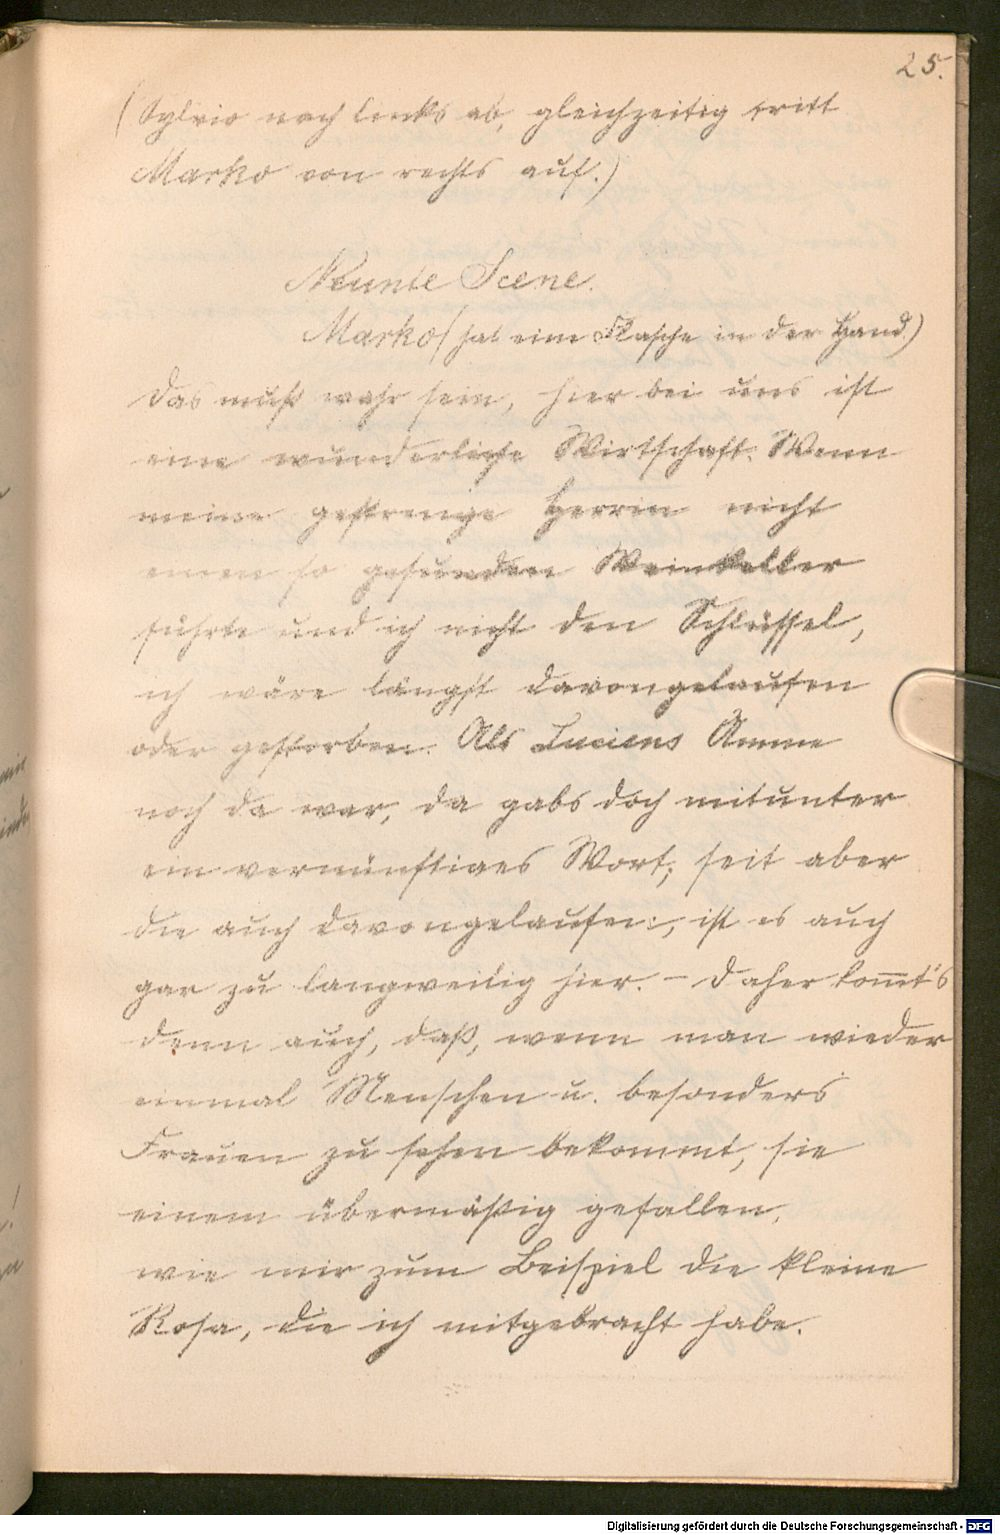 25.
(Sylvio nach links ab, gleichzeitig tritt
Marko von rechts auf.)
Neunte Scene.
Marko (hat eine Flasche in der Hand.)
Das muß wahr sein, hier bei uns ist
eine wunderliche Wirtschaft. Wenn
meine gestrenge Herrin nicht
einen so gesunden Weinkeller
führte und ich nicht den Schlüssel,
ich wäre längst davongelaufen
oder gestorben. Als Luciens Amme
noch da war, da gabs doch mitunter
ein vernünftiges Wort; seit aber
die auch davongelaufen, ist es auch
gar zu langweilig hier. – Daher kom̅t's
denn auch, daß, wenn man wieder
einmal Menschen u. besonders
Frauen zu sehen bekommt, sie
einem übermäßig gefallen,
wie mir zum Beispiel die kleine
Rosa, die ich mitgebracht habe.
Digitalisierung gefördert durch die Deutsche Forschungsgemeinschaft - DFG